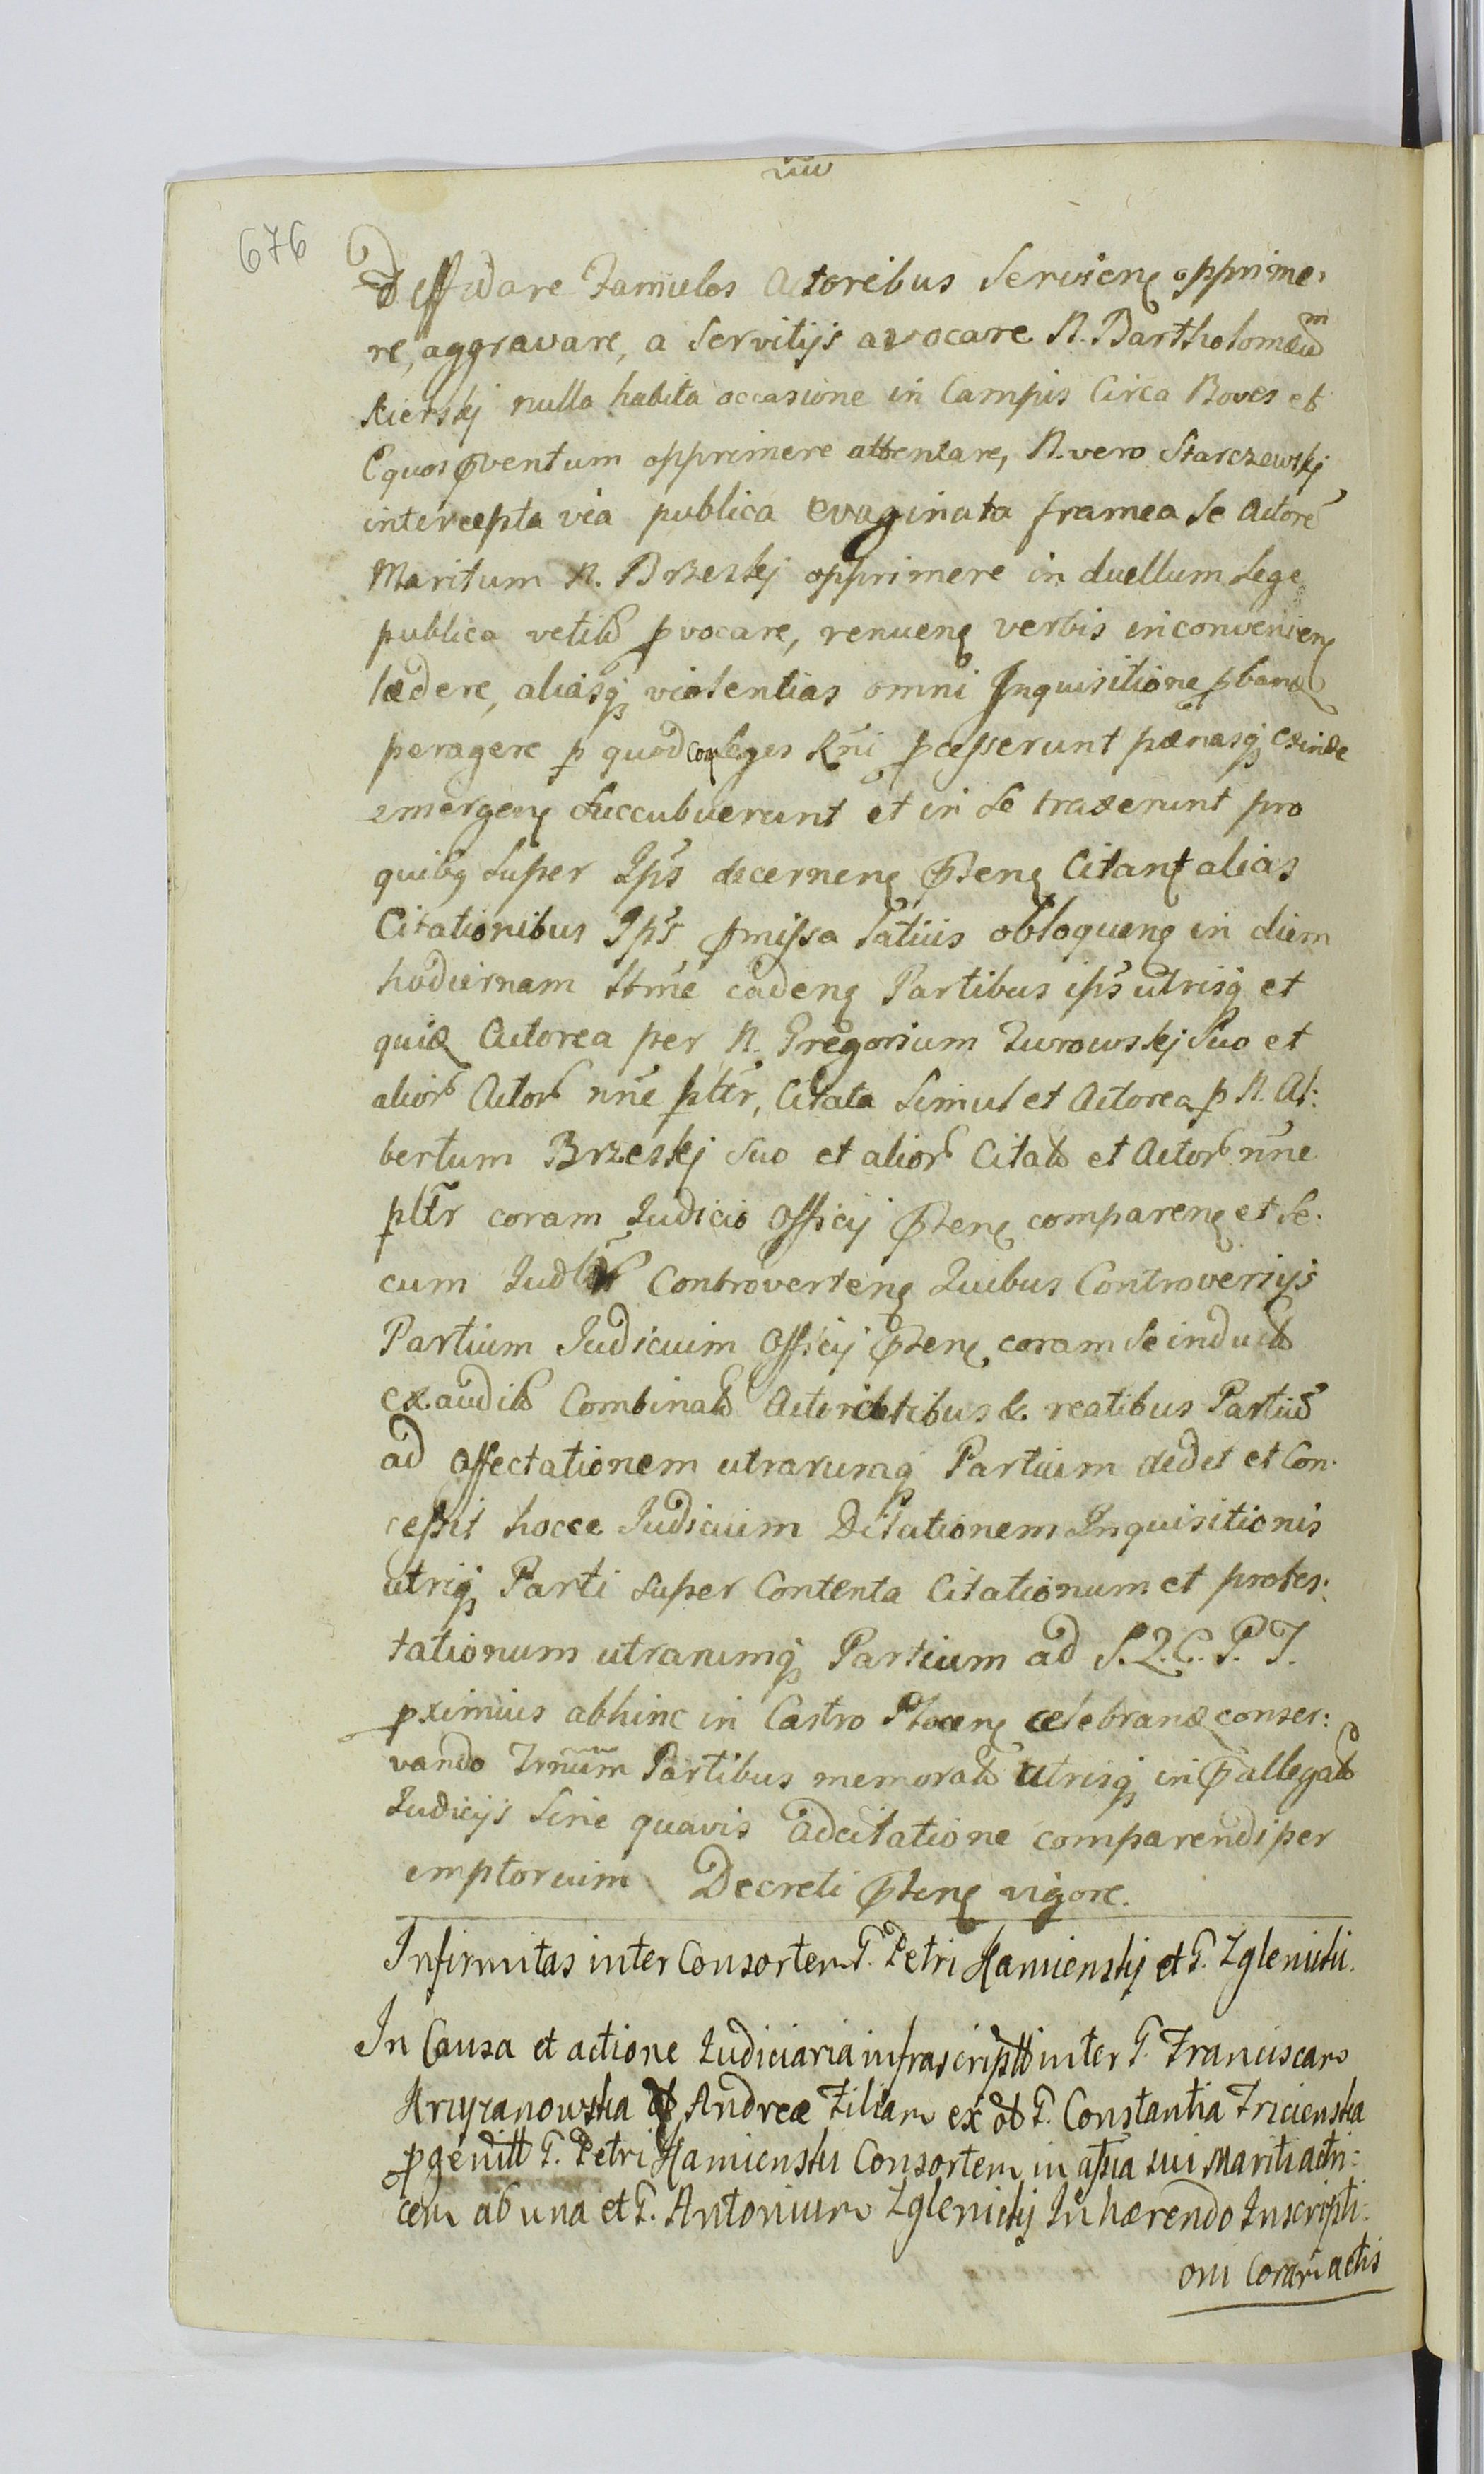 676
Diffidare Famulos Actoribus Servien opprime,
re, aggravare, a Servitijs avocare N. Bartholomæum
Kierskj nulla habita occasione in Campis Circa Boves et
Equos pventum opprimere attentare, N. vero Starczewskj
intercepta via publica evaginata framea se Actore
Maritum N. Brzeskj opprimere in duellum Lege
publica vetit pvocare, renuen verbis inconvenien
lædere, aliasq violentias omni Inquisitione pban
peragere p quod Con leges Rni pcesserunt pænasq exinde
emergen succubuerunt et in se traxerunt pro
quibq super Ips decernen pten Citant alias
Citationibus Ips pmissa latius obloquen in diem
hodiernam ttme caden Partibus ips utrisq et
quid Actorea per N. Gregorium Zurowskj Suo et
alior Actor nne pltr, Citata Simul et Actorea p N. Al:
bertum Brzeskj suo et alior Citat et Actor nne
pltr coram Judicio Officij pten comparen et Se:
cum Judltr Controverten Quibus Controversijs
Partium Judicium Officij pten coram se induct
exaudit Combinat Actoritatibus & reatibus Partiu
ad affectationem utrarumq Partium dedit et Con:
cessit hocce Judicium Dilationem Inquisitionis
utriq Parti super Contenta Citationum et protes:
tationum utrarumq Partium ad J. Q. C. P. T.
pximius abhinc in Castro Plocen celebrand conser:
vando Trnum Partibus memorat utrisq in pallegat
Judicijs Sine quavis adcitatione comparendi per
emptorium Decreti pten vigore.
Infirmitas inter Consortem G. Petri Kamienskj et G. Zglenicki.
In Causa et actione Judiciaria infrascriptt inter G. Franciscam
Krzyzanowska G Andreæ Filiam ex olt G. Constantia Fricienska
pgenitt G. Petri Kamienski Consortem in assia sui Mariti actri:
cem ab una et G. Antonium Zglenickj Inhærendo Inscripti:
oni Coram actis